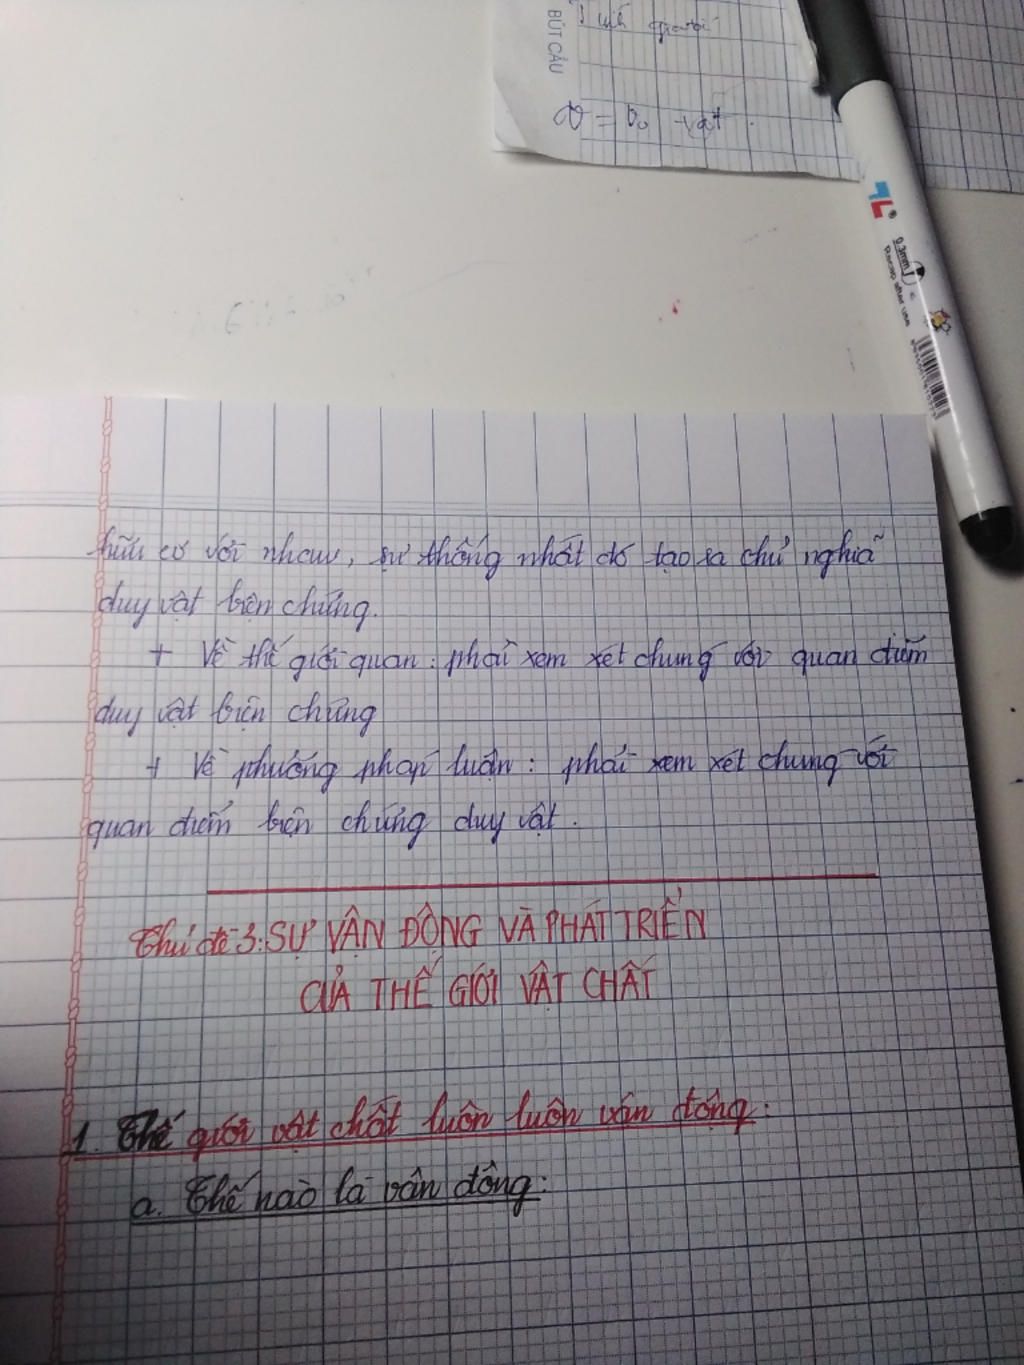 BÚT CẦU
0.3mm
Recap after use
hữu cơ với nhau, sự thống nhất đó tạo ra chủ nghĩa
duy vật biện chứng.
+ Về thế giới quan: phải xem xét chúng với quan điểm
duy vật biện chứng
+ Về phương pháp luận: phải xem xét chúng với
quan điểm biện chứng duy vật.
Chủ đề 3: SỰ VẬN ĐỘNG VÀ PHÁT TRIỂN
CỦA THẾ GIỚI VẬT CHẤT
1. Thế giới vật chất luôn luôn vận động:
a. Thế nào là vận động: